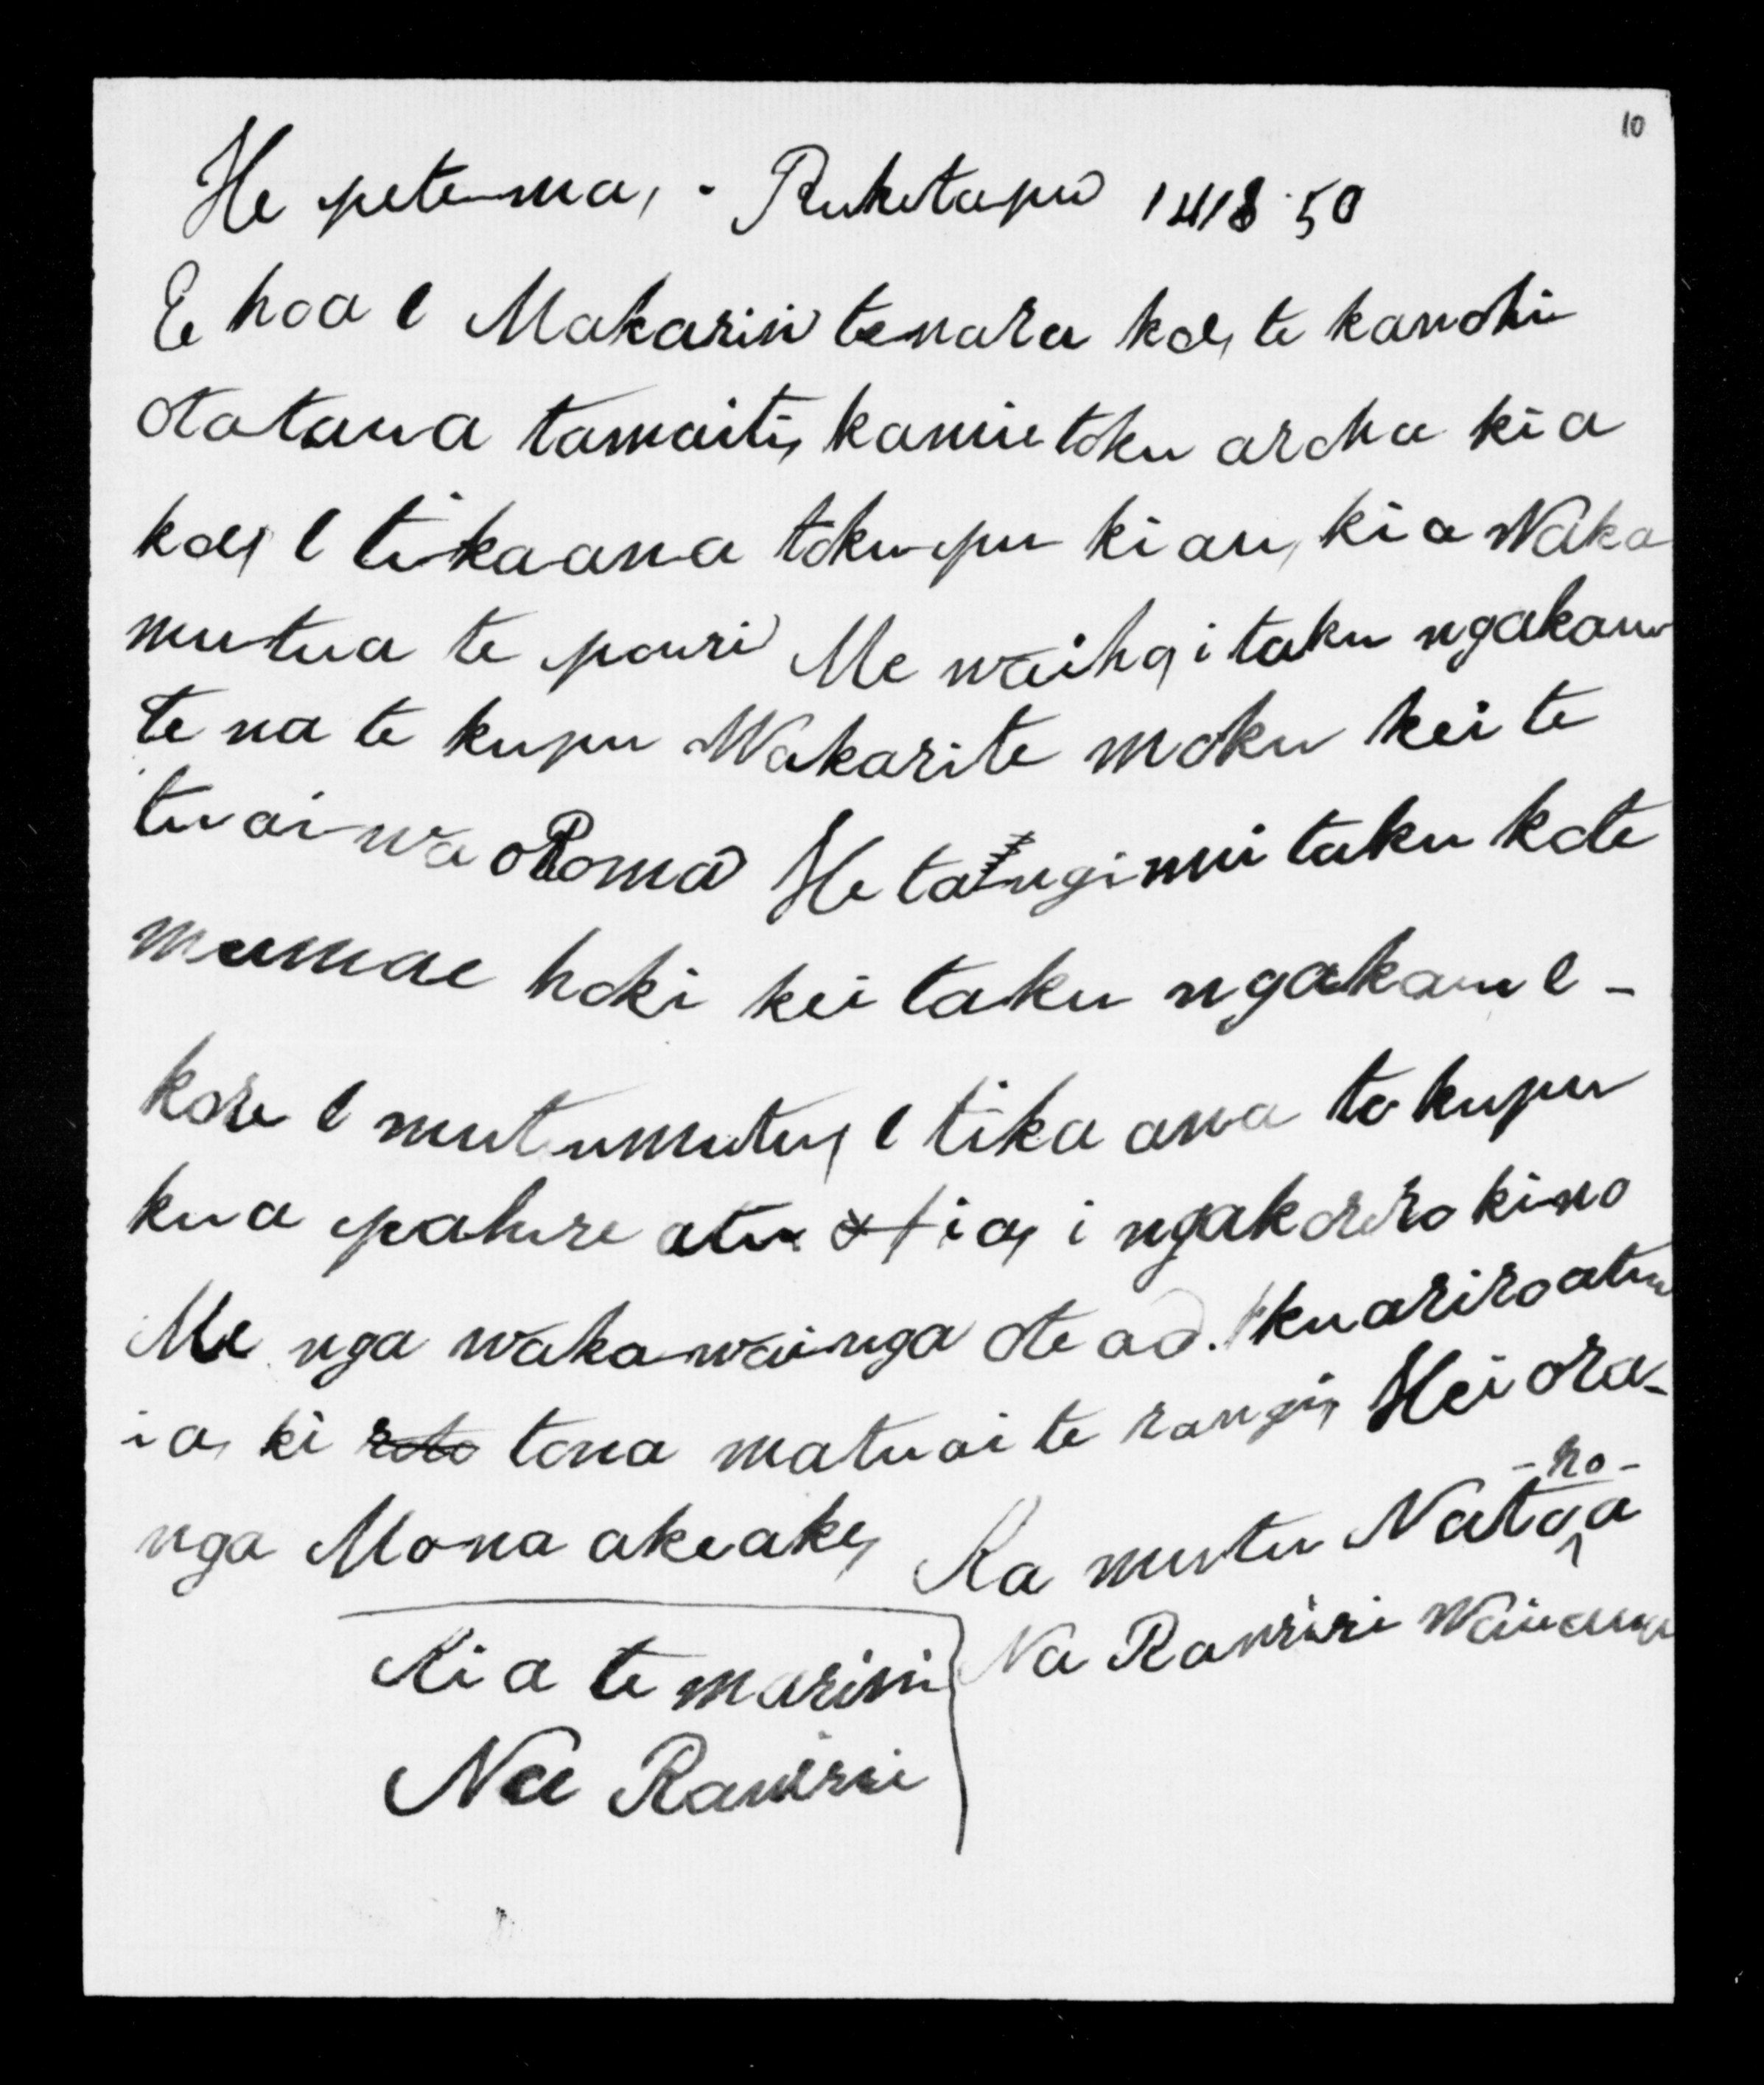 10
He petema, - Puketapu 14 18 50
E hoa e Makarini tenara koe, te kanohi
otataua tamaiti, kanui toku aroha kia
koe, e tikaana tokupu kiau, kia Waka
mutua te pouri Me waiho, i taku ngakau
te na te kupu Wakarite moku kei te
tuaiwa o Roma He tangi nui taku kote
mamae hoki kei taku ngakau e -
kore e mutumutu, e tika ana to kupu
kua pahure atu ia, i ngakorero kino
Me nga wakawainga ote ao. kuariroatu
ia, ki roto tona matuai te rangi, Hei ora-
nga Mona akeake, Ka mutu Natoa
-ho-
Kia te marini Na Rawiri Waieaua
Na Rawiri